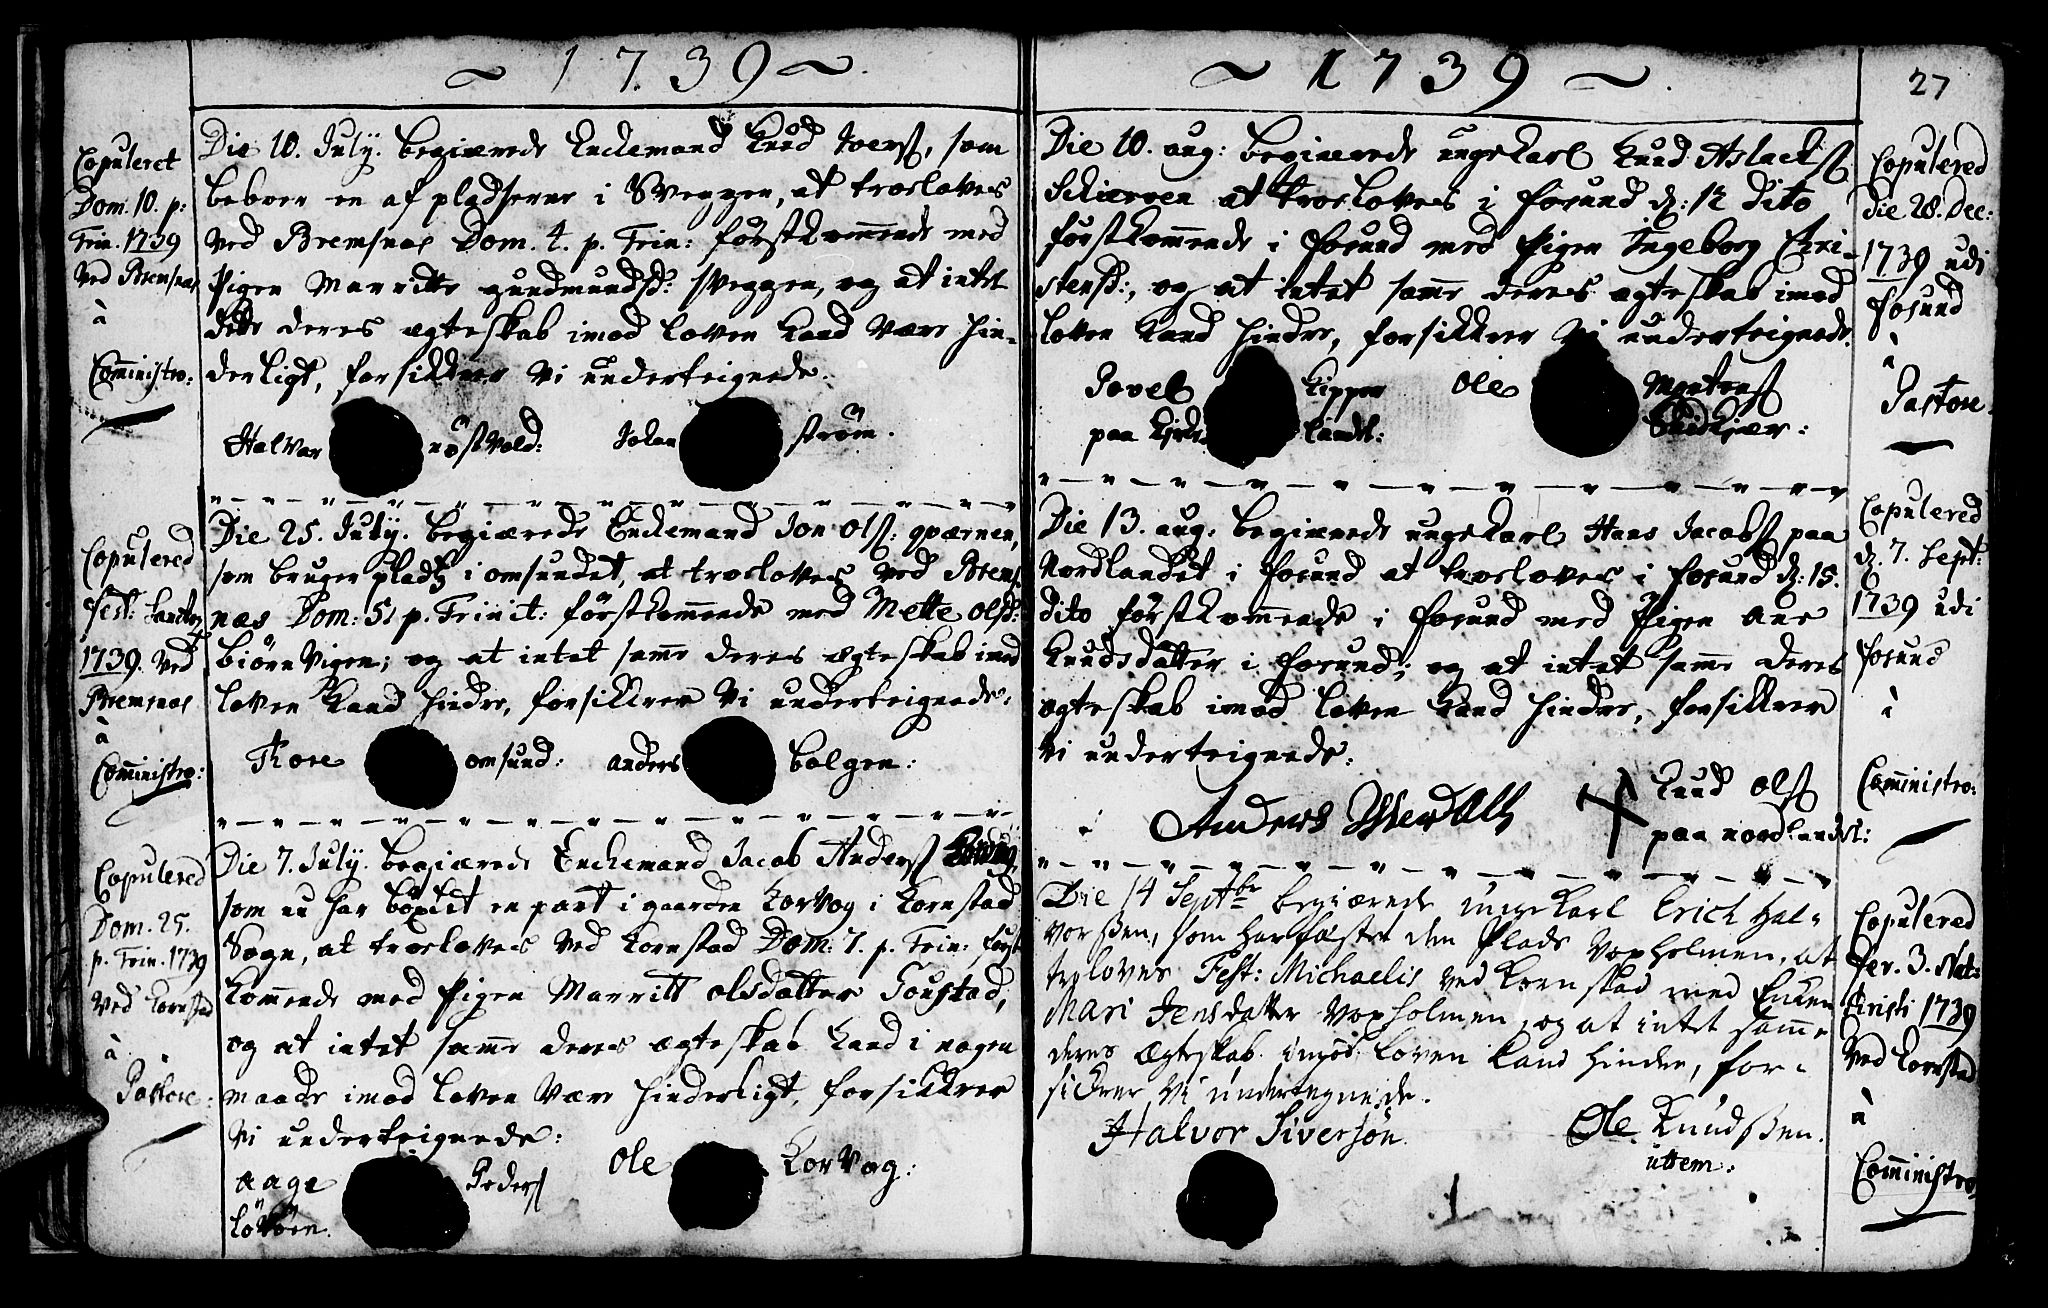 ~ 1739 ~
Copuleret
Dom. 10. p:
Trin. 1739
ved Bremsnæs
à
Comministro:
Die 10. July. begiærede Enckemand Knud Joerß, som
beboer en af pladserne i Sveggen, at troeloves
ved Bremsnæs Dom. 4. p. Trin: förstkommende med
Pigen Marritte gundmundsd: Sveggen, og at intet
dette deres ægteskab imod loven kand være hin-
derligt, forsikkrer vi underteignede.
Halvar nøstvold: Johan ström.
Copulered
fest:
1739. ved
Bremsnæs
à
Comministro:
Die 25. July. begiærede Enckemand Jon Olß: qværnen,
som bruger pladtz i omsundet, at troeloves ved Brems-
næs Dom: 5. p. Trinit: förstkommende med Mette olsd:
biörnvigen; og at intet samme deres ægteskab imod
loven kand hindre, forsikkrer vi underteignede:
Tore omsund: anders bolgen:
Copulered
Dom. 25.
p. Trin. 1739
ved Kornstad
à
Pastore:
Die 7. July. begiærede Enckemand Jacob Anderß
som nu har böxlet en part i gaarden Korvog i Kornstad
Sogn, at troeloves ved Kornstad Dom: 7. p. Trin: först
kommende med Pigen Marritt olsdatter Toustad,
og at intet samme deres ægteskab kand i nogen
maade imod loven være hinderligt, forsikkrer
vi underteignede:
aage Pederß Ole Korvog:
lövöen.
~ 1739 ~
27
Die 10. aug: begiærede ungekarl Knud Aslackß
Skierven at troeloves i fosund d: 12 dito
förstkommende i fosund med Pigen Ingeborg Chri-
stensd:, og at intet samme deres ægteskab imod
loven kand hindre, forsikkrer vi underteignede.
Povel Kipper Ole Mortenß
paa landet:
Copulered
die 28. Dec:
1739 udi
fosund
à
Pastore.
Die 13. aug: begiærede ungekarl Hans Jacobß paa
Nordlandet i fosund at troeloves i fosund d: 15.
dito förstkommende i fosund med Pigen Ane
Knudsdatter i fosund; og at intet samme deres
ægteskab imod loven kand hindre, forsikkrer
vi underteignede:
Anders Knud olß
paa nordlandet:
Copulered
d. 7. Sept:
1739 udi
fosund
à
Comministro:
Die 14 Septbr begiærede ungekarl Erich Hal-
vorßen, som har fæstet den Plads Voxholmen, at
troloves Fest: Michaelis ved Kornstad med Enken
Mari Jensdatter Voxholmen, og at intet samme
deres Ægteskab imod loven kand hindre, for-
sickrer vi undertegnede.
Halvor Siversön. Ole Knudßen.
uttem:
Copulered
fer. 3. Nat:
Christi 1739
ved Kornstad
à
Comministro